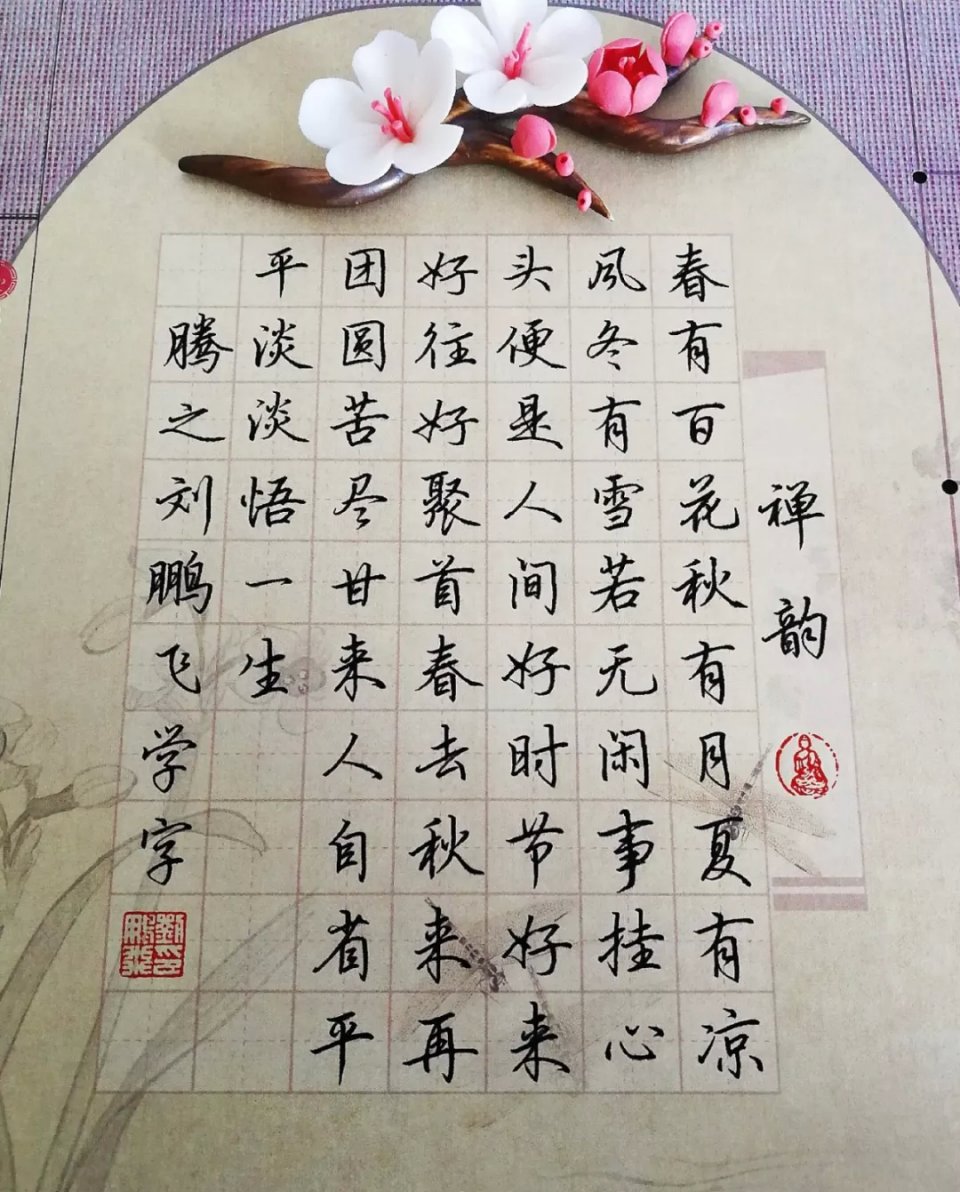 禅韵
春有百花秋有月夏有凉
风冬有雪若无闲事挂心
头便是人间好时节好来
好往好聚首春去秋来再
团圆苦尽甘来人自省平
平淡淡悟一生
腾之刘鹏飞学字